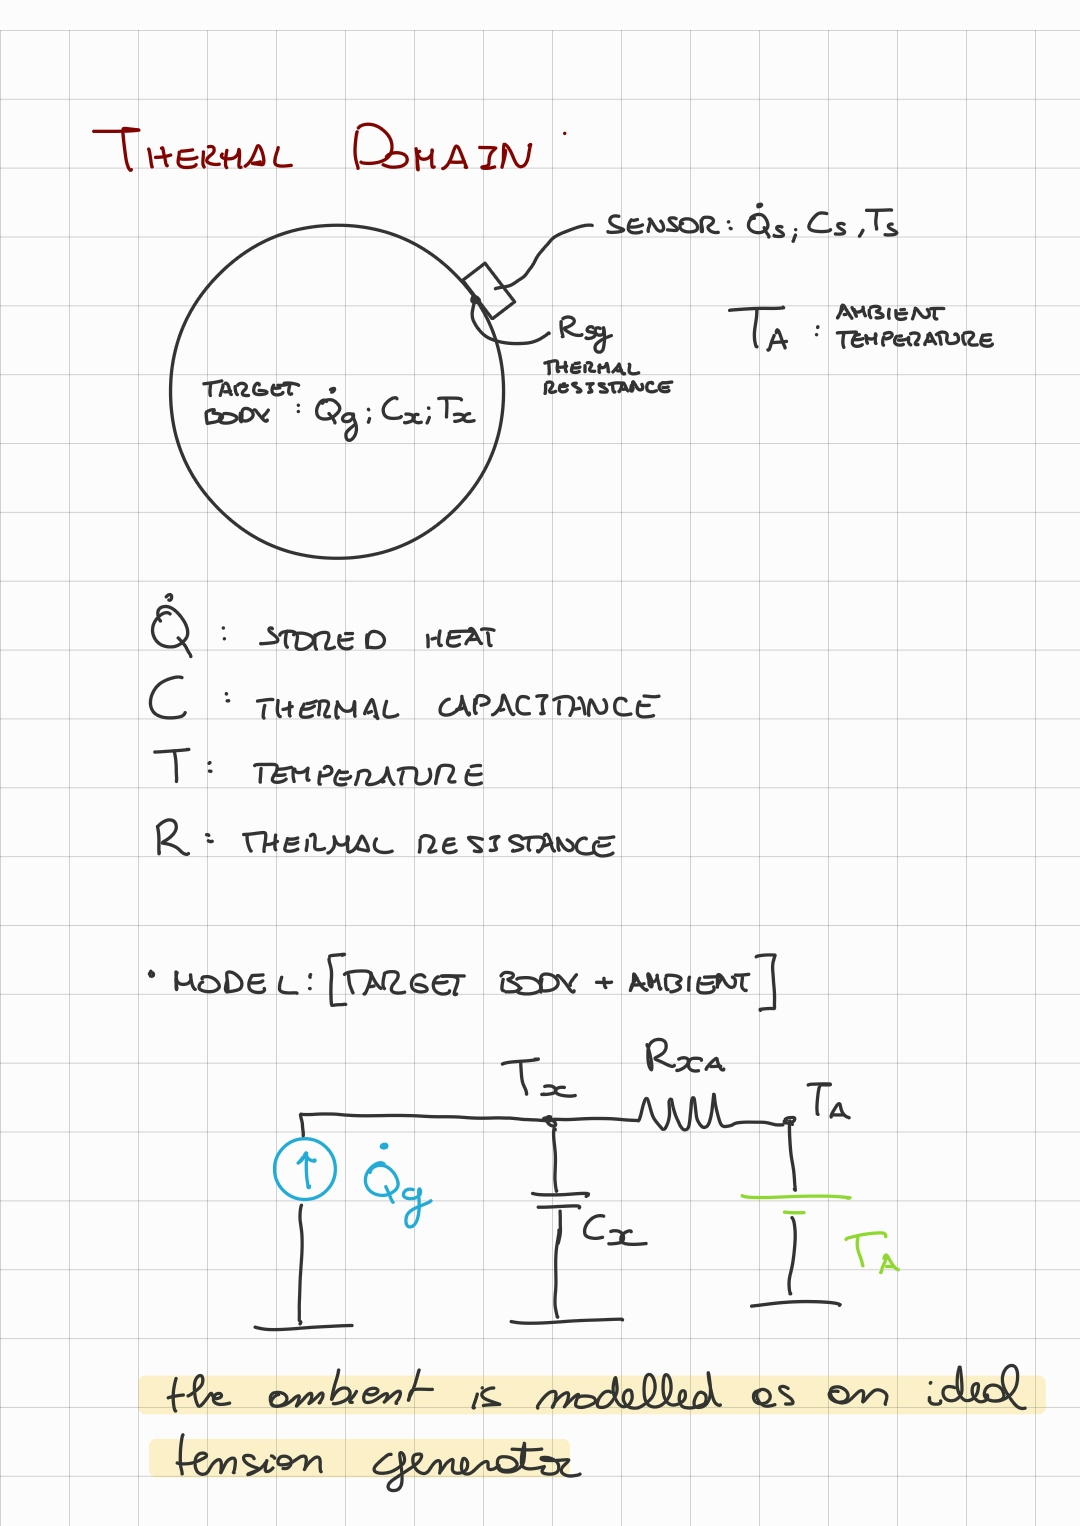 THERMAL DOMAIN
SENSOR: Q̇s; Cs, Ts
Rsg
THERMAL
RESISTANCE
TA : AMBIENT
TEMPERATURE
TARGET
BODY : Q̇g; Cx; Tx
Q̇ : STORED HEAT
C : THERMAL CAPACITANCE
T : TEMPERATURE
R : THERMAL RESISTANCE
• MODEL: [TARGET BODY + AMBIENT]
Tx
RxA
TA
Q̇g
Cx
TA
the ambient is modelled as an ideal
tension generator